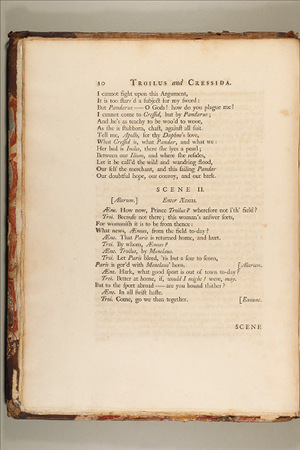 20 TROILUS and CRESSIDA.
I cannot fight upon this Argument,
It is too starv'd a subject for my sword:
But Pandarus—O Gods! how do you plague me!
I cannot come to Cressid, but by Pandarus;
And he's as teachy to be woo'd to wooe,
As she is stubborn, chast, against all suit.
Tell me, Apollo, for thy Daphne's love,
What Cressid is, what Pandar, and what we:
Her bed is India, there she lyes a pearl;
Between our Ilium, and where she resides,
Let it be call'd the wild and wandring flood,
Our self the merchant, and this sailing Pandar
Our doubtful hope, our convoy, and our bark.
SCENE II.
[Alarum.] Enter ÆNEAS.
Æne. How now, Prince Troilus? wherefore not i'th' field?
Troi. Because not there; this woman's answer sorts,
For womanish it is to be from thence:
What news, Æneas, from the field to-day?
Æne. That Paris is returned home, and hurt.
Troi. By whom, Æneas?
Æne. Troilus, by Menelaus.
Troi. Let Paris bleed, 'tis but a scar to scorn,
Paris is gor'd with Menelaus' horn. [Alarum.
Æne. Hark, what good sport is out of town to-day?
Troi. Better at home, if, would I might, were, may.
But to the sport abroad—are you bound thither?
Æne. In all swift haste.
Troi. Come, go we then together. [Exeunt.
SCENE